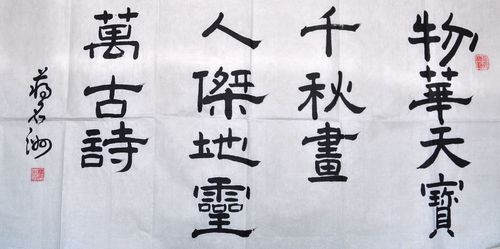 物華天寶
千秋畫
人傑地靈
萬古詩
蔣名洲